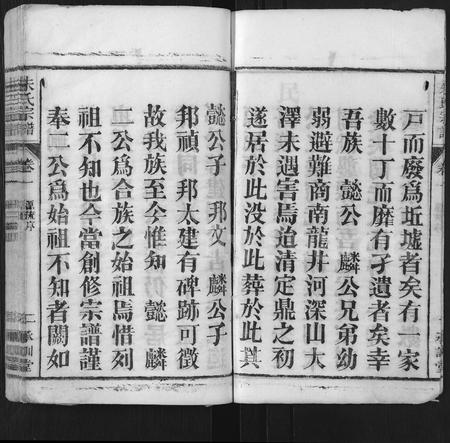 戸而廢為坵墟者矣有一家
數十丁而靡有孑遺者矣幸
吾族 懿公 麟公兄弟幼
弱避難商南龍井河深山大
澤未遇害焉迨清定鼎之初
遂居於此没於此葬於此其
懿公子 邦文 麟公子
邦禎 邦太建有碑跡可徵
故我族至今惟知 懿 麟
二公為合族之始祖焉惜刻
祖不知也今當創修宗譜謹
奉二公為始祖不知者闕如
朱氏宗譜
卷